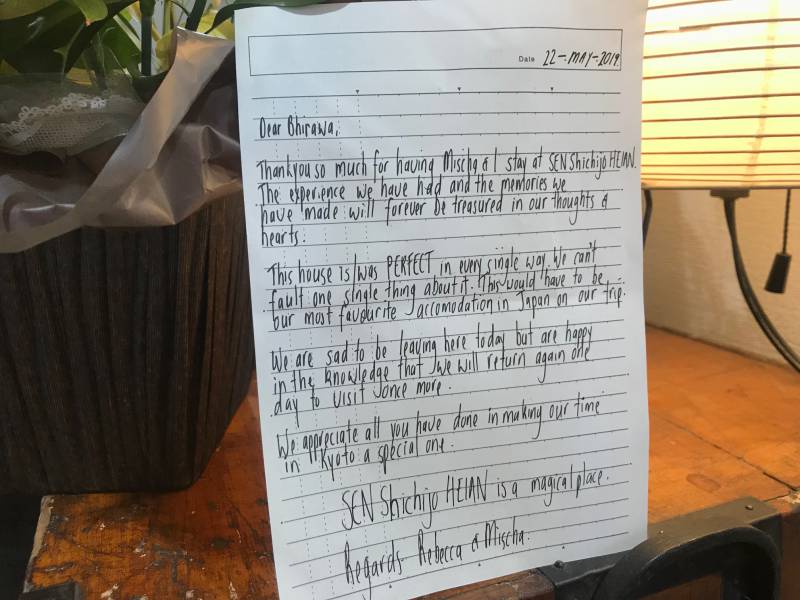 Date 22-MAY-2019.
Dear Bhirawa,
Thankyou so much for having Mischa & I stay at SEN Shichijo HEIAN.
The experience we have had and the memories we
have made will forever be treasured in our thoughts &
hearts.
This house is/was PERFECT in every single way. We can't
fault one single thing about it. This would have to be
our most favourite accomodation in Japan on our trip.
We are sad to be leaving here today but are happy
in the knowledge that we will return again one
day to visit once more.
We appreciate all you have done in making our time
in Kyoto a special one.
SEN Shichijo HEIAN is a magical place.
Regards Rebecca & Mischa.